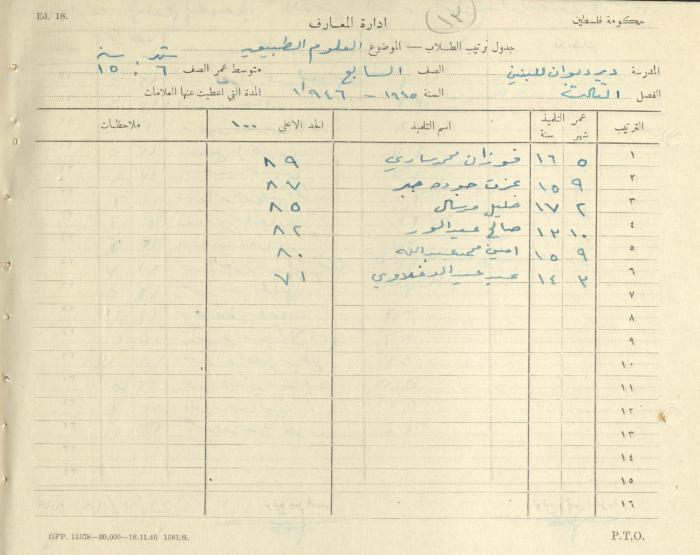 Ed. 18.
ادارة المعارف
(١٣)
حكومة فلسطين
جدول ترتيب الطلاب — الموضوع العلوم الطبيعيه
المدرسة ديرديوان للبنين الصف السابع متوسط عمر الصف ٦ : ١٥ سنة
الفصل الثالث السنة ١٩٤٥ – ١٩٤٦ المدة التي اعطيت عنها العلامات
الترتيب عمر التلميذ شهر سنة اسم التلميذ الحد الاعلى ١٠٠ ملاحظات
١ ٥ ١٦ فوزان محمد ساري ٨٩
٢ ٩ ١٥ عزت جوده جبر ٨٧
٣ ٢ ١٧ خليل مرسال ٨٥
٤ ١٠ ١٣ صالح ٨٢
٥ ٩ ١٥ امين محمد عبدالله ٨٠
٦ ٣ ١٤ ٧١
٧
٨
٩
١٠
١١
١٢
١٣
١٤
١٥
١٦
GPP. 11578—20,000—18.11.40 1581/S.
P.T.O.